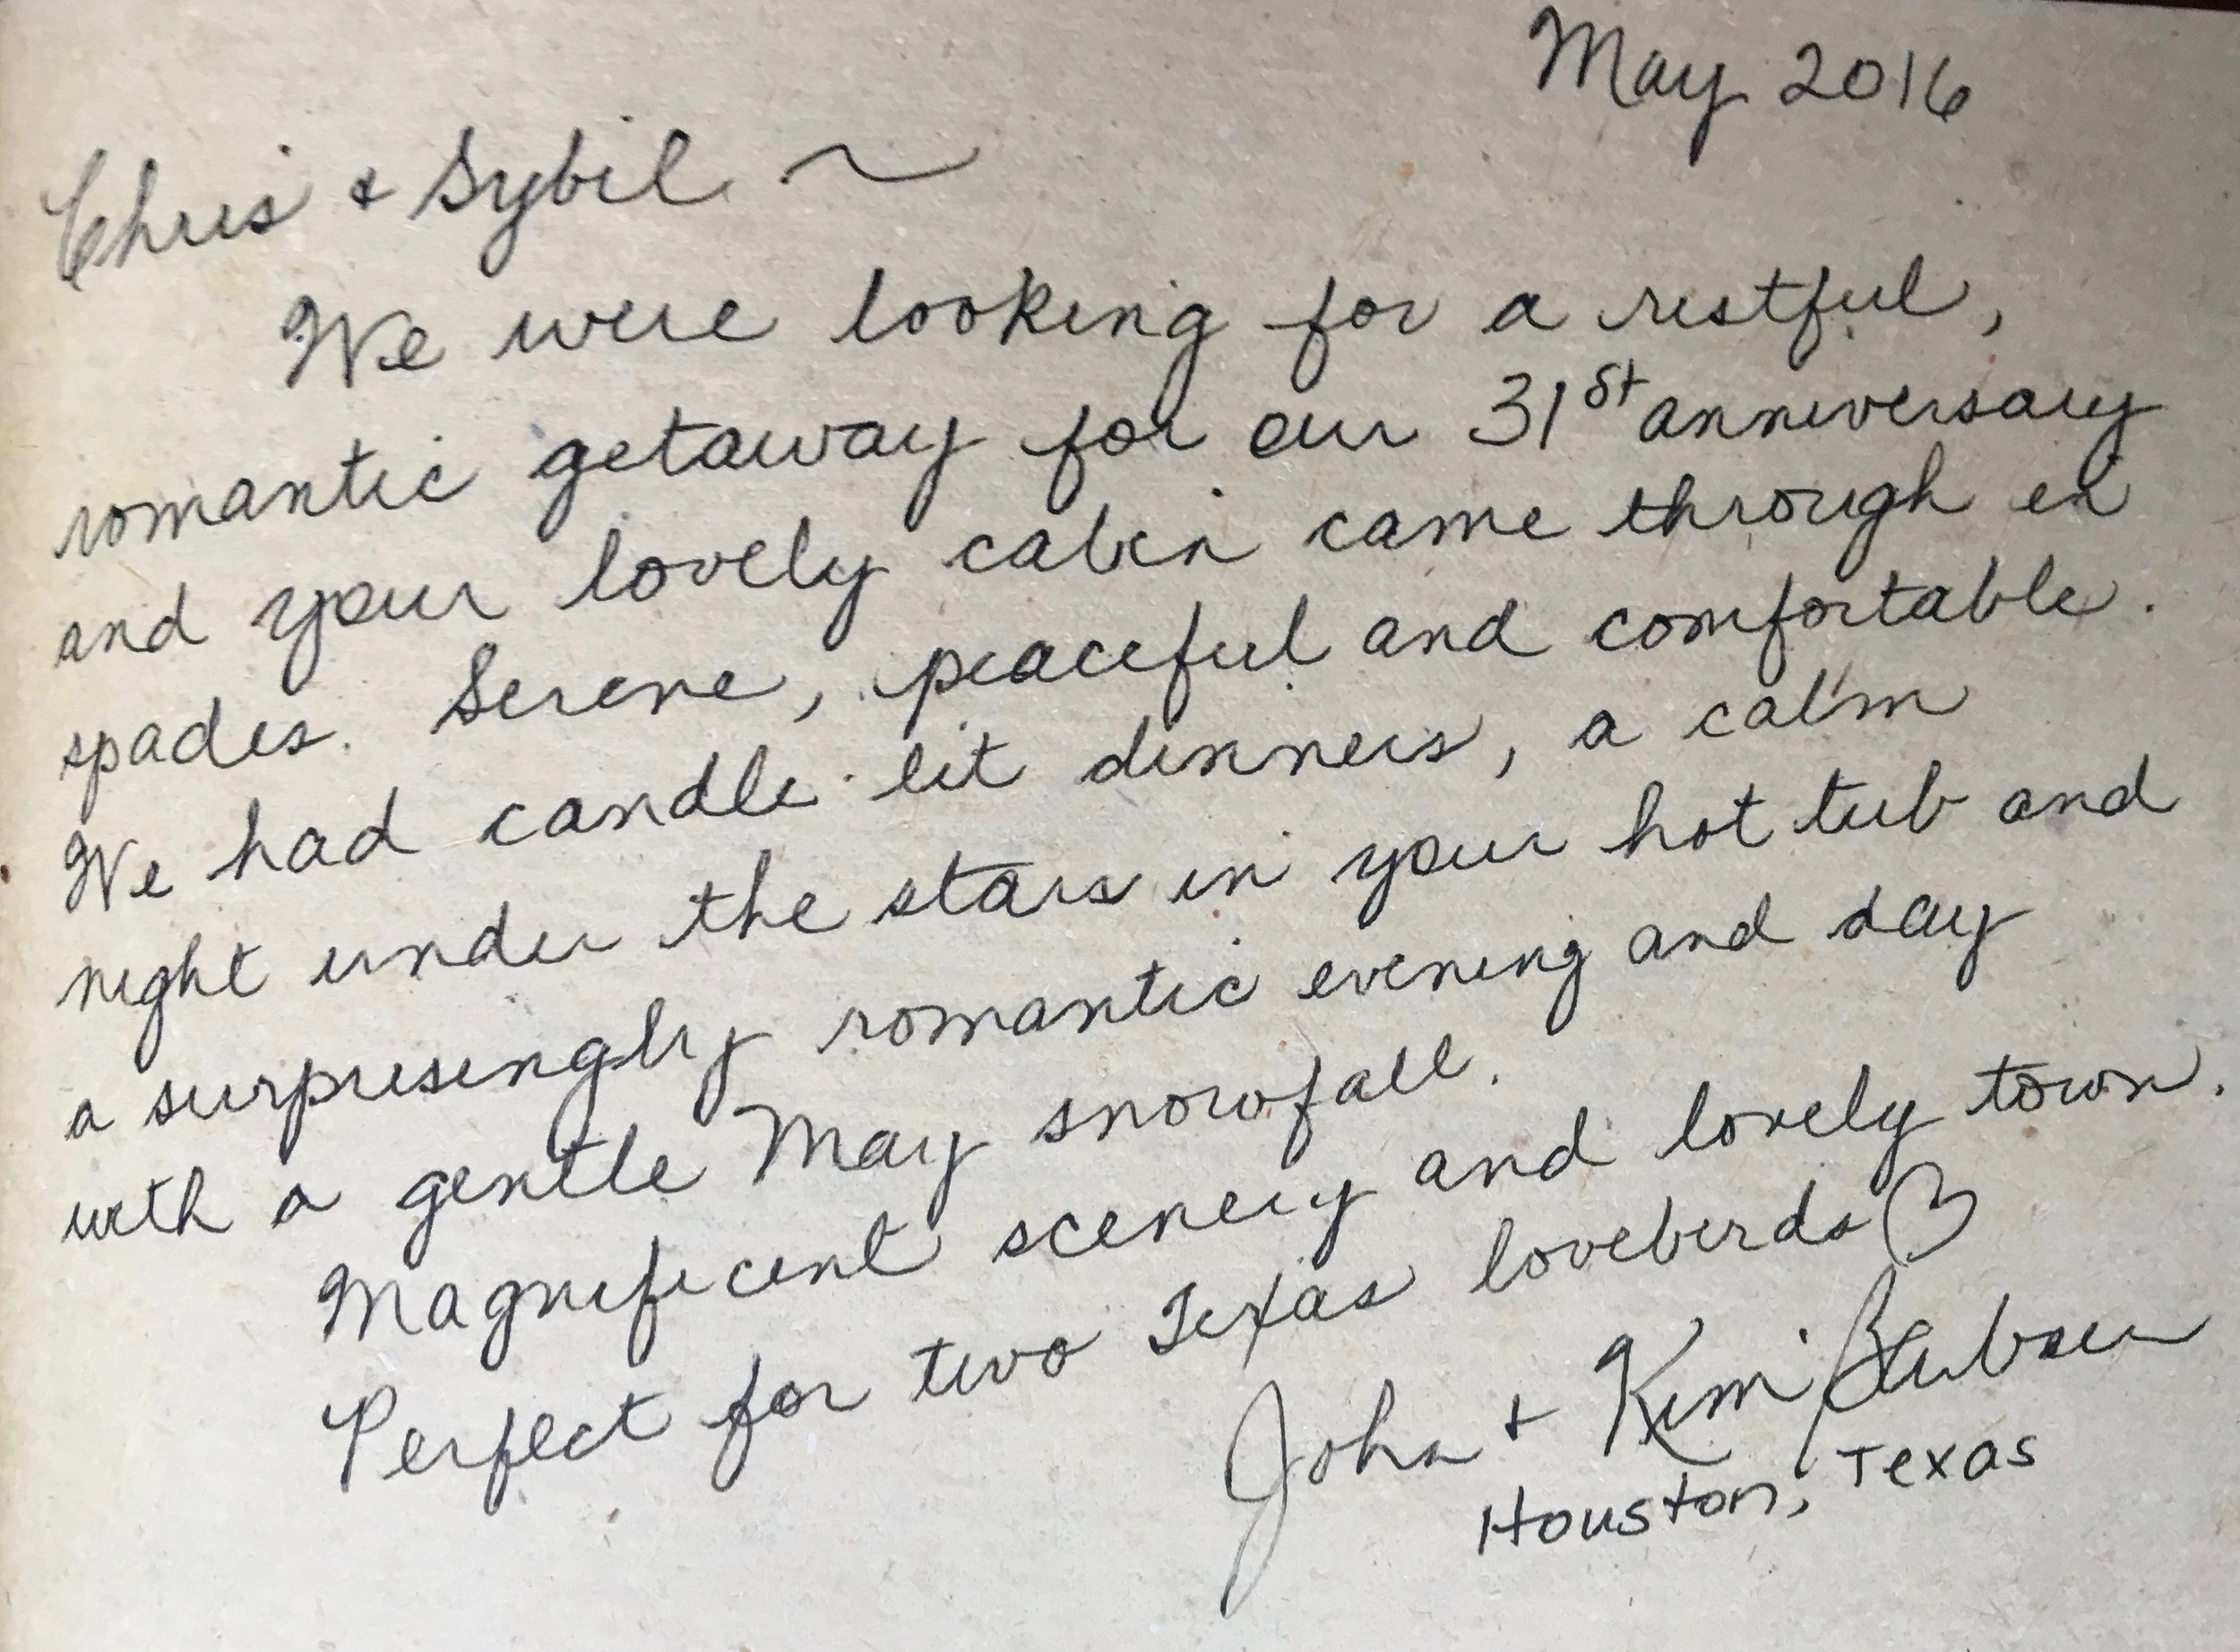 May 2016
Chris + Sybil ~
We were looking for a restful,
romantic getaway for our 31st anniversary
and your lovely cabin came through in
spades. Serene, peaceful and comfortable.
We had candle-lit dinners, a calm
night under the stars in your hot tub and
a surprisingly romantic evening and day
with a gentle May snowfall.
Magnificent scenery and lovely town.
Perfect for two Texas lovebirds ♡
John + Kim
Houston, Texas